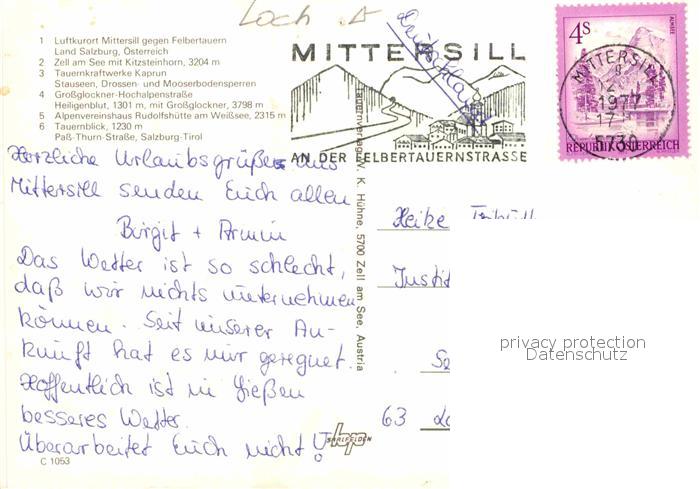 Loch
1 Luftkurort Mittersill gegen Felbertauern
Land Salzburg, Österreich
2 Zell am See mit Kitzsteinhorn, 3204 m
3 Tauernkraftwerke Kaprun
Stauseen, Drossen- und Mooserbodensperren
4 Großglockner-Hochalpenstraße
Heiligenblut, 1301 m, mit Großglockner, 3798 m
5 Alpenvereinshaus Rudolfshütte am Weißsee, 2315 m
6 Tauernblick, 1230 m
Paß-Thurn-Straße, Salzburg-Tirol
MITTERSILL
AN DER FELBERTAUERNSTRASSE
4S
MITTERSILL
1977
5730
REPUBLIK ÖSTERREICH
Herzliche Urlaubsgrüße aus
Mittersill senden Euch allen
Birgit + Armin
Das Wetter ist so schlecht,
daß wir nichts unternehmen
können. Seit unserer An-
kunft hat es nur geregnet.
Hoffentlich ist in Gießen
besseres Wetter.
Überarbeitet Euch nicht!
C 1053
Tauernverlag W. K. Hühne, 5700 Zell am See, Austria
SAALFELDEN
Heike
Instit
63
privacy protection
Datenschutz